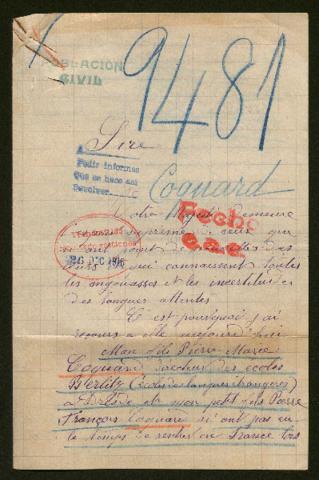 POBLACION
CIVIL
9481
Sire
A
Pedir informes
Que se hace así
Devolver
Coquard
Votre Majesté demeure
Fecho
suprême de ceux qui
des
26 DIC 1916
qui connaissent toutes
les angoisses et les incertitudes
des longues attentes
C'est pourquoi j'ai
recours à elle aujourd'hui
Mon fils Pierre Marie
Coquard directeur des écoles
Berlitz (écoles de langues étrangères)
à et mon petit fils Pierre
François Coquard n'ont pas eu
le temps de rentrer en France lors